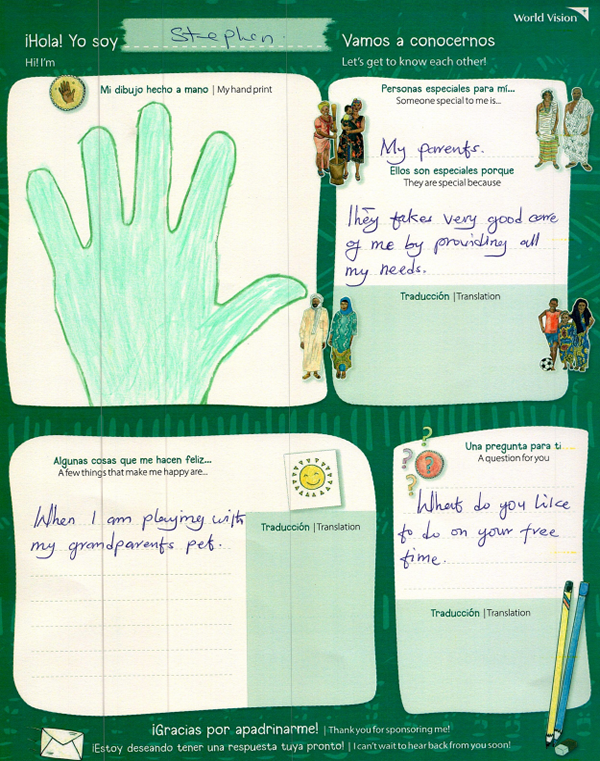 World Vision
¡Hola! Yo soy Stephen.
Hi! I'm
Vamos a conocernos
Let's get to know each other!
Mi dibujo hecho a mano | My hand print
Personas especiales para mí...
Someone special to me is...
My parents.
Ellos son especiales porque
They are special because
They takes very good care
of me by providing all
my needs.
Traducción | Translation
Algunas cosas que me hacen feliz...
A few things that make me happy are...
When I am playing with
my grandparents pet.
Traducción | Translation
Una pregunta para ti
A question for you
What do you like
to do on your free
time.
Traducción | Translation
¡Gracias por apadrinarme! | Thank you for sponsoring me!
¡Estoy deseando tener una respuesta tuya pronto! | I can't wait to hear back from you soon!